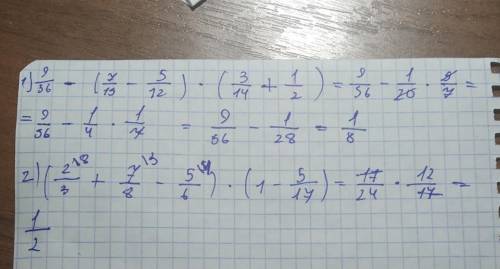 1) 9/56 - (7/15 - 5/12) · (3/14 + 1/2) = 9/56 - 1/20 · 5/7 =
= 9/56 - 1/4 · 1/7 = 9/56 - 1/28 = 1/8
2) (2/3 \8 + 7/8 \3 - 5/6 \4) · (1 - 5/17) = 17/24 · 12/17 =
1/2